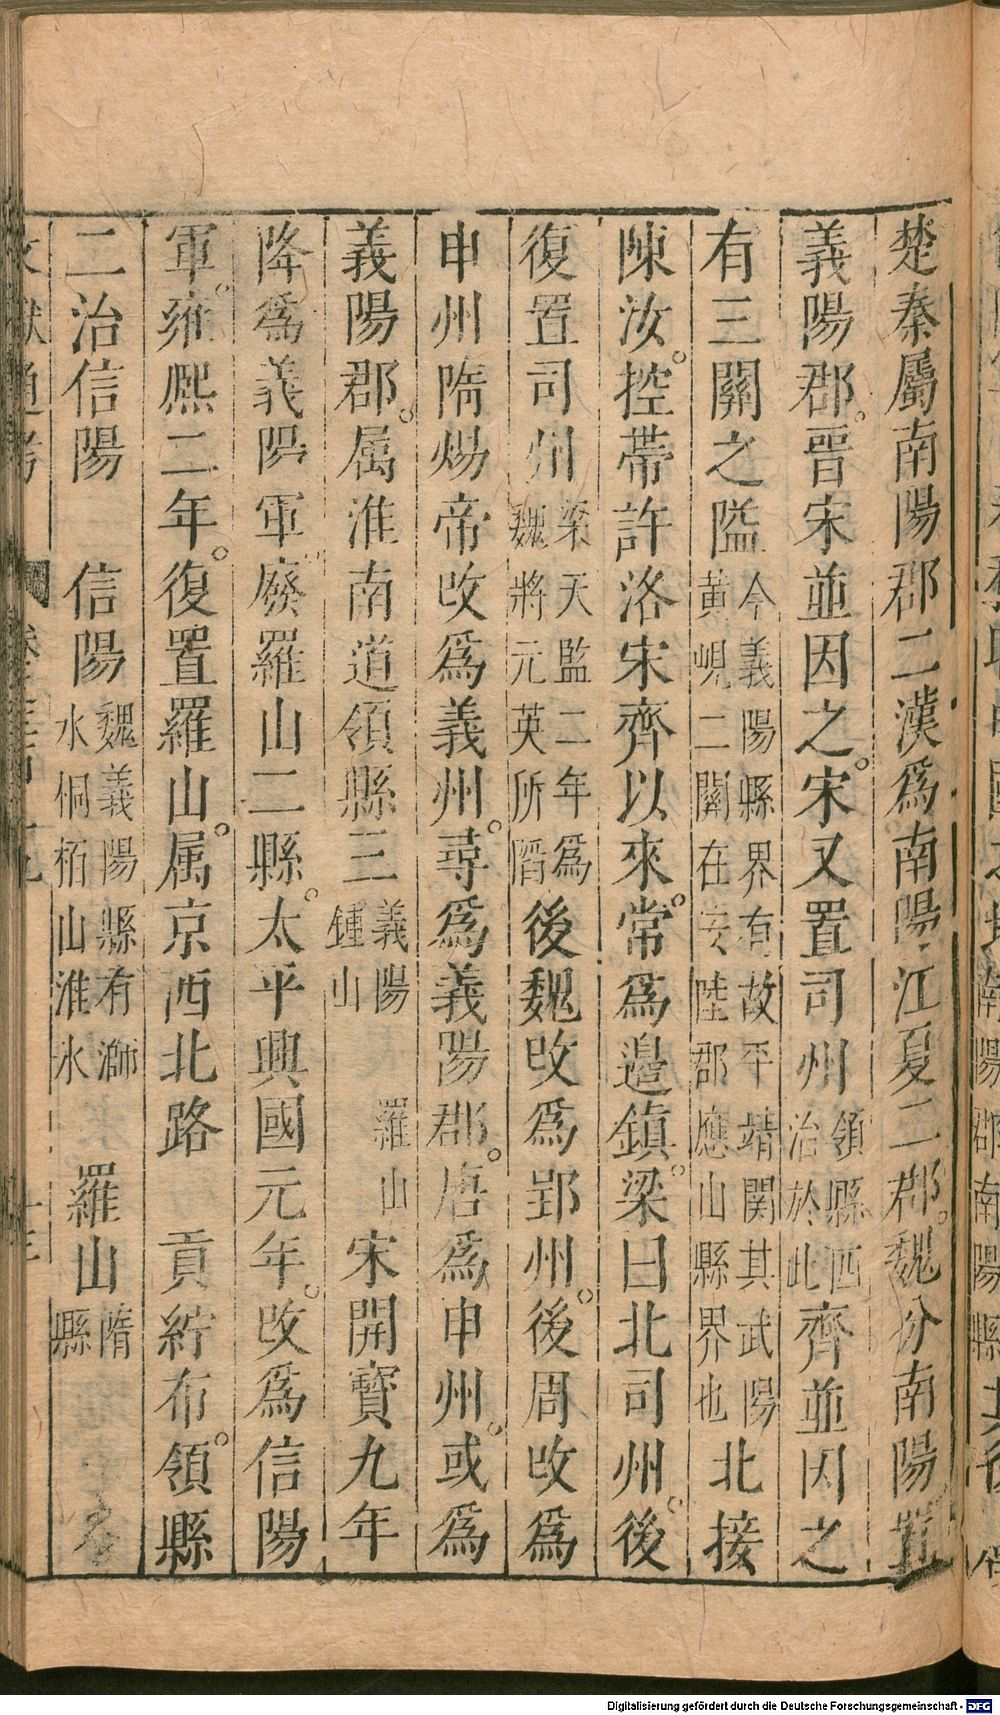 楚秦屬南陽郡二漢為南陽江夏二郡。魏分南陽置
義陽郡。晉宋並因之。宋又置司州領縣四治於此齊並因之
有三關之隘今義陽縣界有故平靖関其武陽黃峴二關在安陸郡應山縣界也北接
陳汝。控帶許洛宋齊以來。常為邊鎮。梁曰北司州。後
復置司州梁天監二年為魏將元英所陷後魏改為郢州。後周改為
申州隋煬帝改為義州。尋為義陽郡。唐為申州。或為
義陽郡。属淮南道領縣三義陽鍾山羅山宋開寶九年
降為義陽軍。廢羅山二縣。太平興國元年。改為信陽
軍。雍熙二年。復置羅山。属京西北路 貢紵布。領縣
二治信陽 信陽魏義陽縣有溮水桐栢山淮水 羅山隋縣
文獻通考
Digitalisierung gefördert durch die Deutsche Forschungsgemeinschaft - DFG